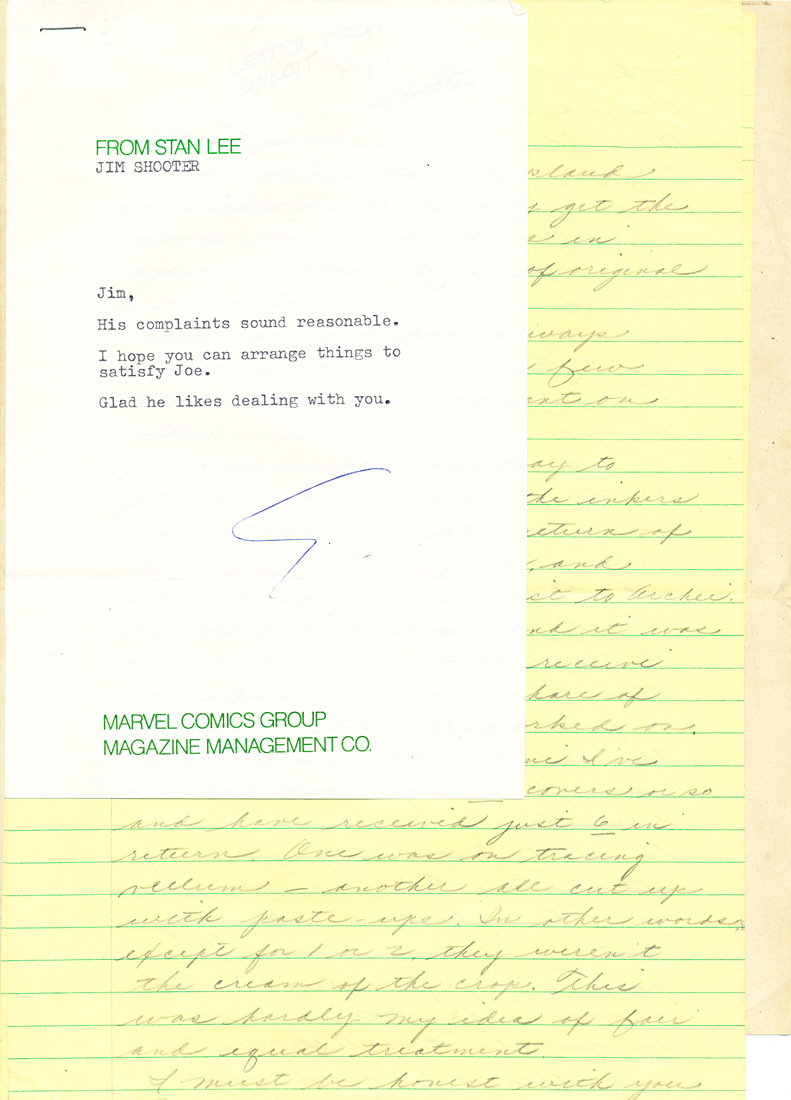 FROM STAN LEE
JIM SHOOTER
Jim,
His complaints sound reasonable.
I hope you can arrange things to
satisfy Joe.
Glad he likes dealing with you.
S.
MARVEL COMICS GROUP
MAGAZINE MANAGEMENT CO.
get the
in
of original
few
on
to
the inkers
of
and
to Archie.
it was
receive
of
on.
I've
covers or so
and have received just 6 in
return. One was on tracing
vellum — another all cut up
with paste-ups. In other words,
except for 1 or 2 they weren't
the cream of the crop. This
was hardly my idea of fair
and equal treatment
I must be honest with you